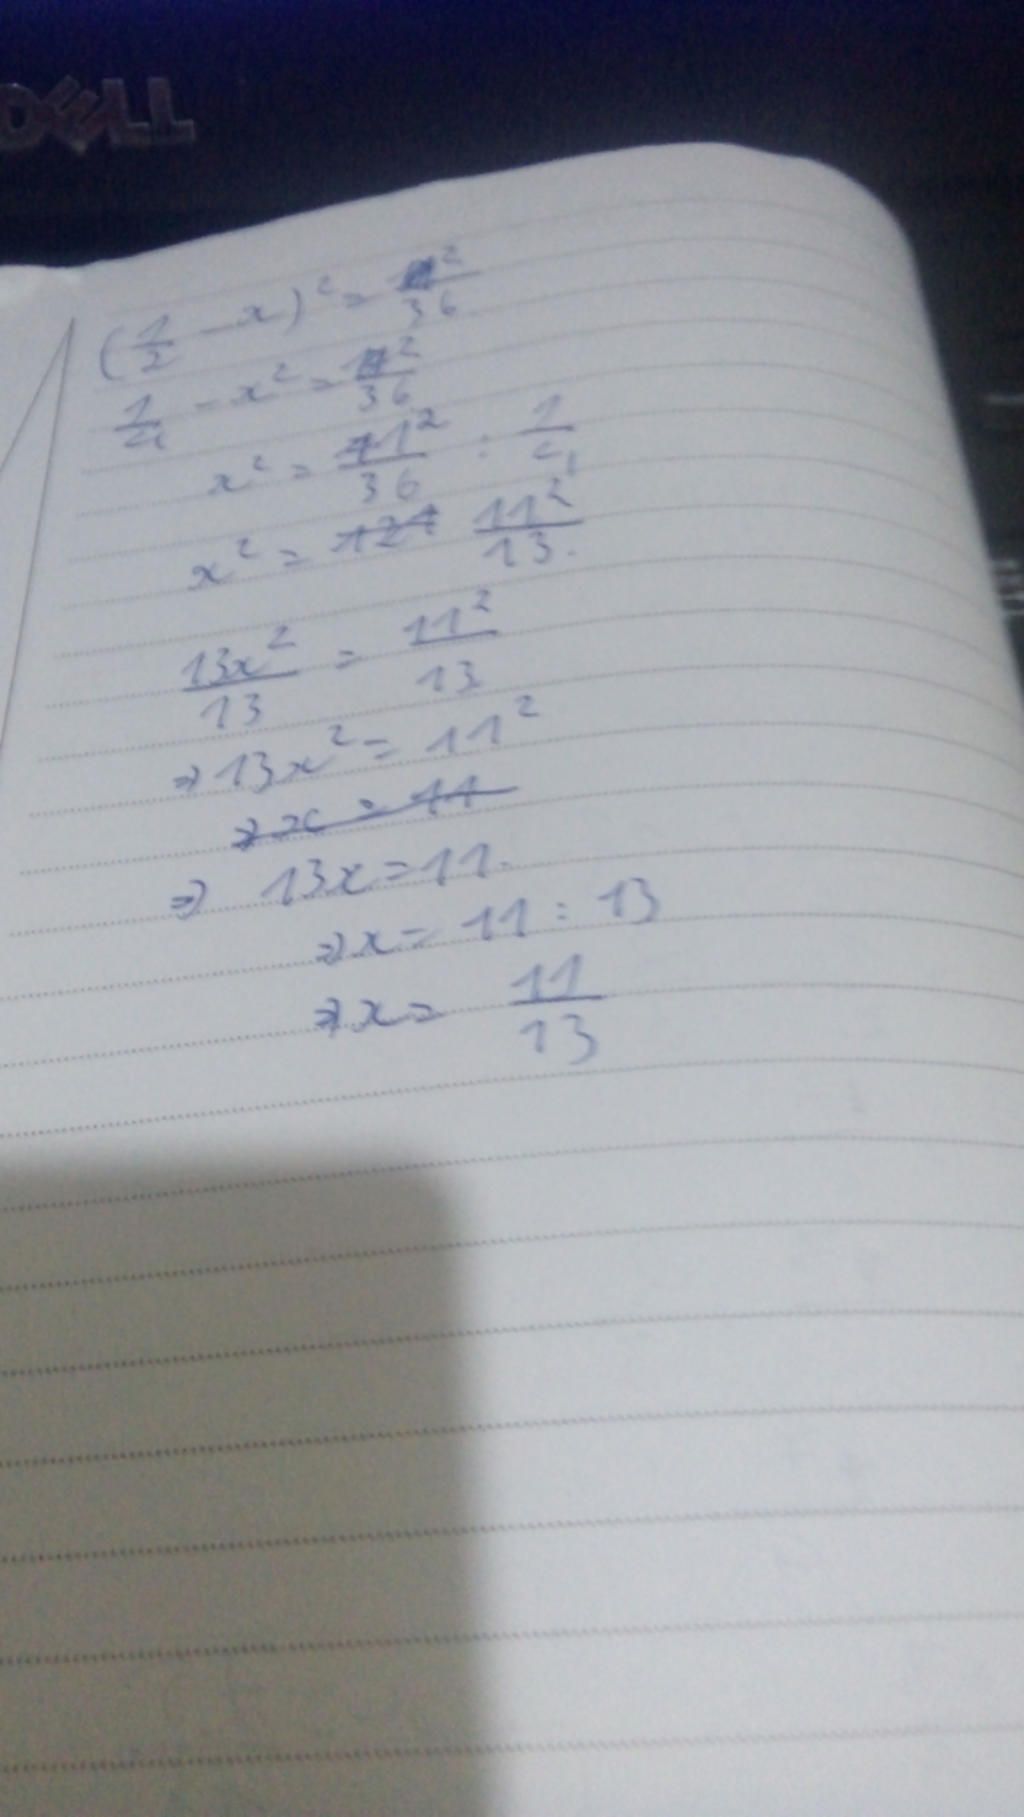 DELL
(1/2 - x)² = 11²/36
1/4 - x² = 11²/36
x² = 11²/36 : 1/4
x² = 121 11²/13.
13x²/13 = 11²/13
⇒ 13x² = 11²
⇒ x = 11
⇒ 13x = 11.
⇒ x = 11 : 13
⇒ x = 11/13